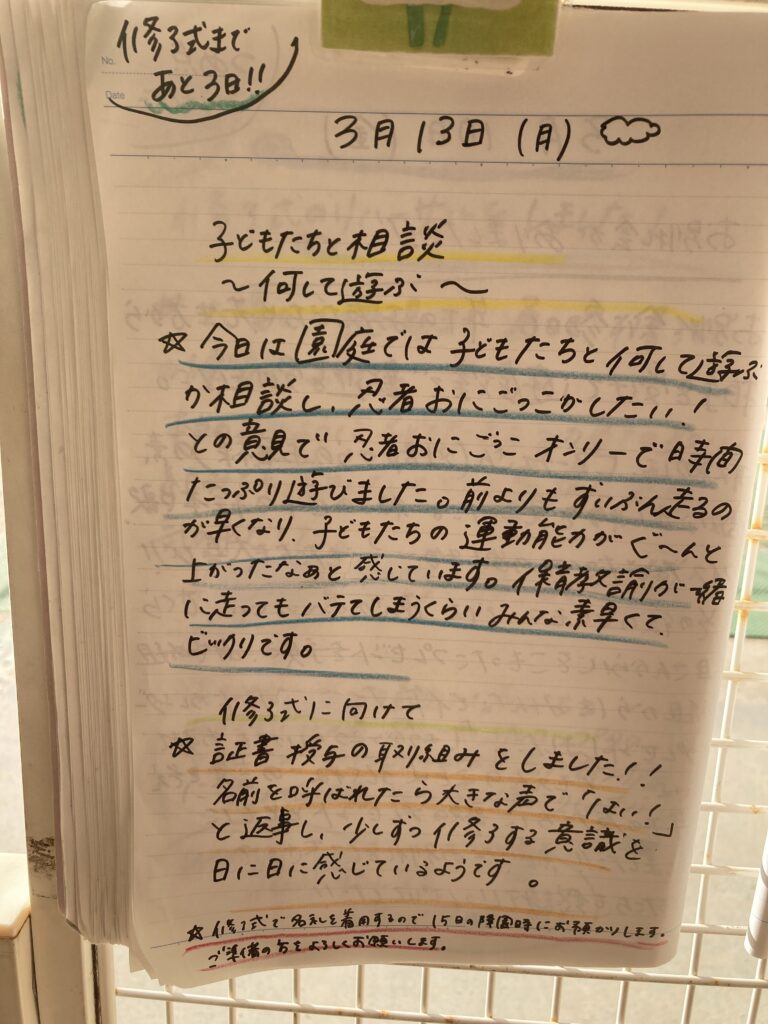 修了式まで
No.
あと3日!!
Date
3月13日(月)
子どもたちと相談
〜何して遊ぶ〜
☆今日は園庭では子どもたちと何して遊ぶ
か相談し、忍者おにごっこがしたい!
との意見で忍者おにごっこオンリーで時間
たっぷり遊びました。前よりもずいぶん走るの
が早くなり、子どもたちの運動能力がぐ〜んと
上がったなあと感じています。保育教諭が一緒
に走ってもバテてしまうくらいみんな素早くて、
ビックリです。
修了式に向けて
☆証書授与の取り組みをしました!!
名前を呼ばれたら大きな声で「はい!」
と返事し、少しずつ修了する意識を
日に日に感じているようです。
☆修了式で名札を着用するので15日の降園時にお預かりします。
ご準備の方をよろしくお願いします。